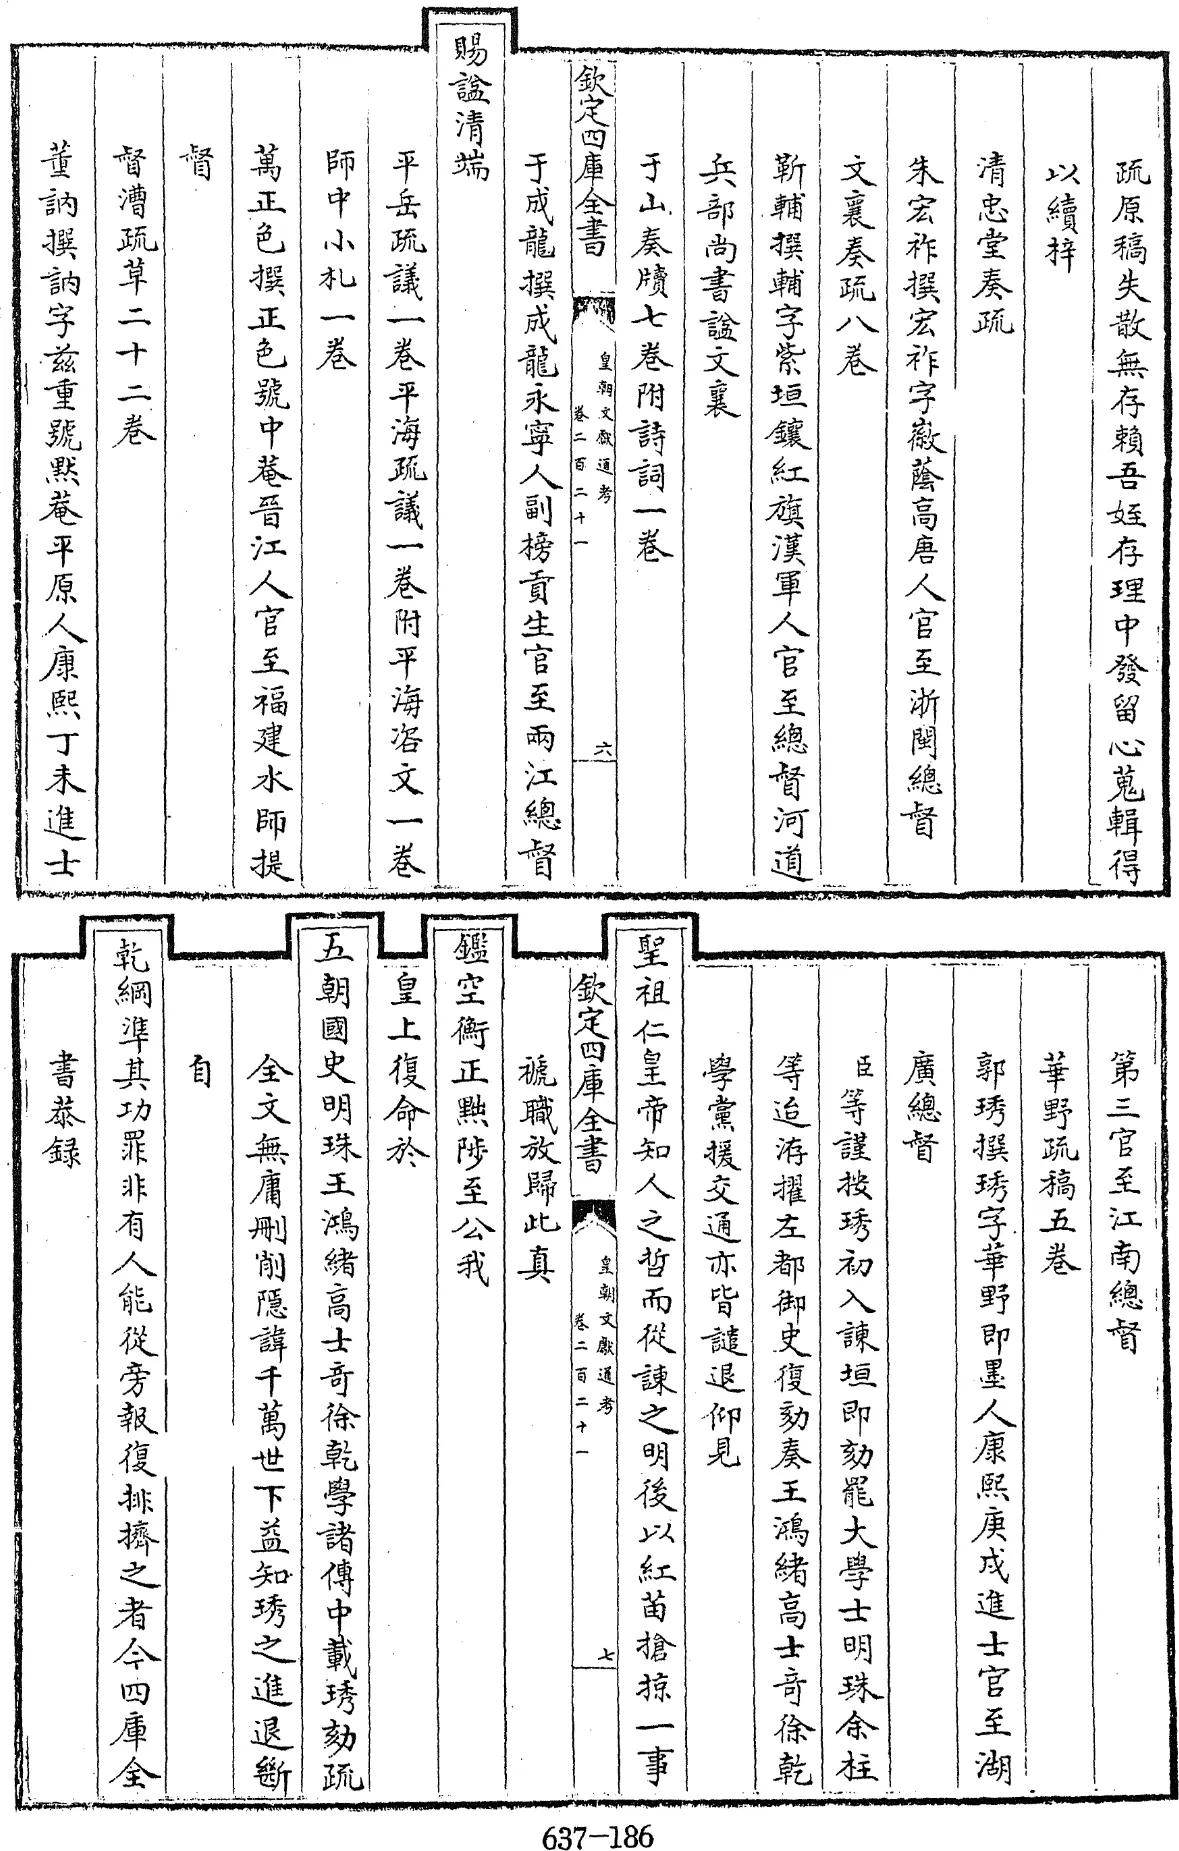 疏原稿失散無存賴吾姪存理中發留心蒐輯得
以續梓
清忠堂奏疏
朱宏祚撰宏祚字徽蔭高唐人官至浙閩總督
文襄奏疏八卷
靳輔撰輔字紫垣鑲紅旗漢軍人官至總督河道
兵部尚書諡文襄
于山奏牘七卷附詩詞一卷
欽定四庫全書
皇朝文獻通考
卷二百二十一
六
于成龍撰成龍永寧人副榜貢生官至兩江總督
賜諡清端
平岳疏議一卷平海疏議一卷附平海咨文一卷
師中小札一卷
萬正色撰正色號中菴晉江人官至福建水師提
督
督漕疏草二十二卷
董訥撰訥字兹重號默菴平原人康熙丁未進士
第三官至江南總督
華野疏稿五卷
郭琇撰琇字華野即墨人康熙庚戌進士官至湖
廣總督
臣等謹按琇初入諫垣即劾罷大學士明珠余柱
等迨洊擢左都御史復劾奏王鴻緒高士奇徐乾
學黨援交通亦皆譴退仰見
聖祖仁皇帝知人之哲而從諫之明後以紅苗搶掠一事
欽定四庫全書
皇朝文獻通考
卷二百二十一
七
褫職放歸此真
鑑空衡正黜陟至公我
皇上復命於
五朝國史明珠王鴻緒高士奇徐乾學諸傳中載琇劾疏
全文無庸刪削隱諱千萬世下益知琇之進退斷
自
乾綱準其功罪非有人能從旁報復排擠之者今四庫全
書恭録
637-186